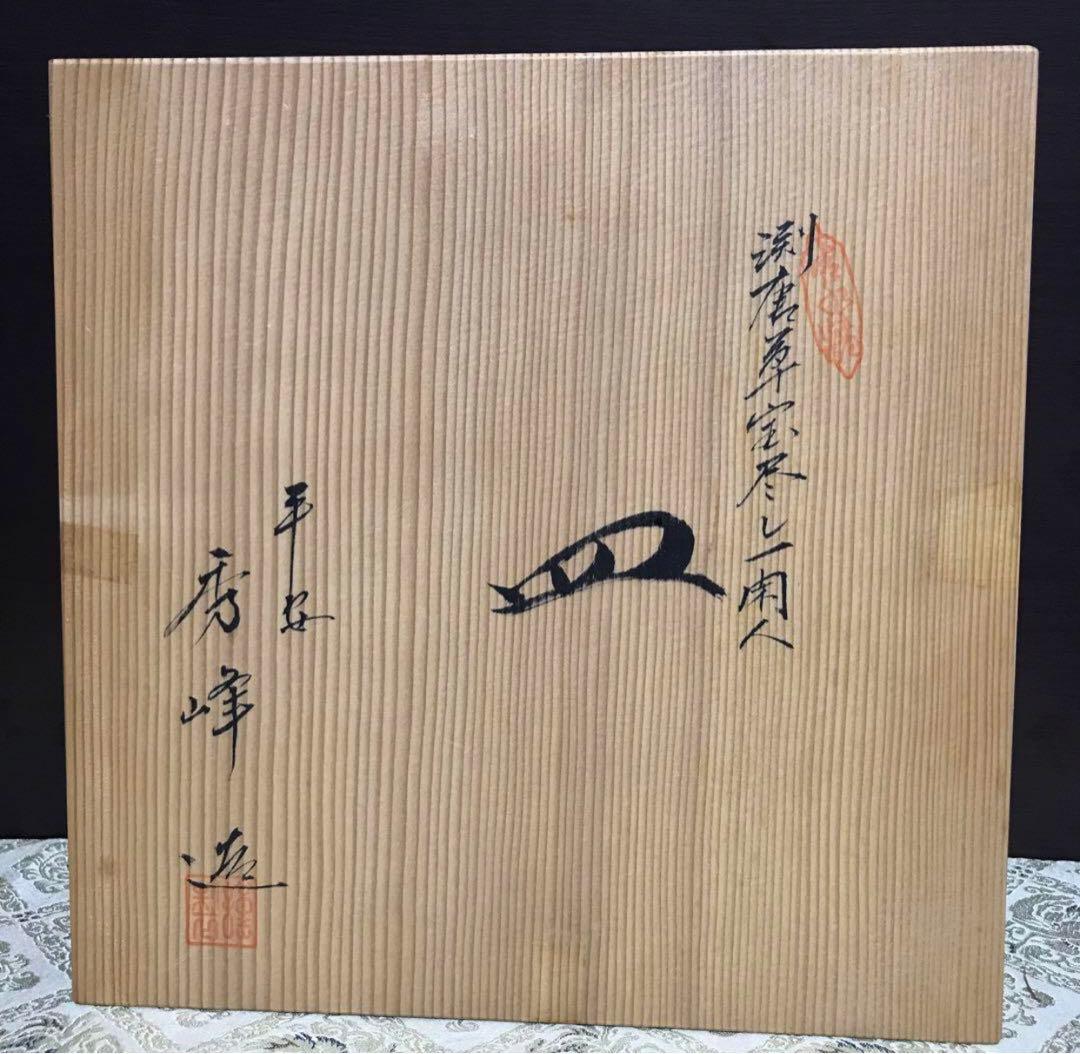 渕唐草宝尽し一閑人
皿
平安
秀峰
造